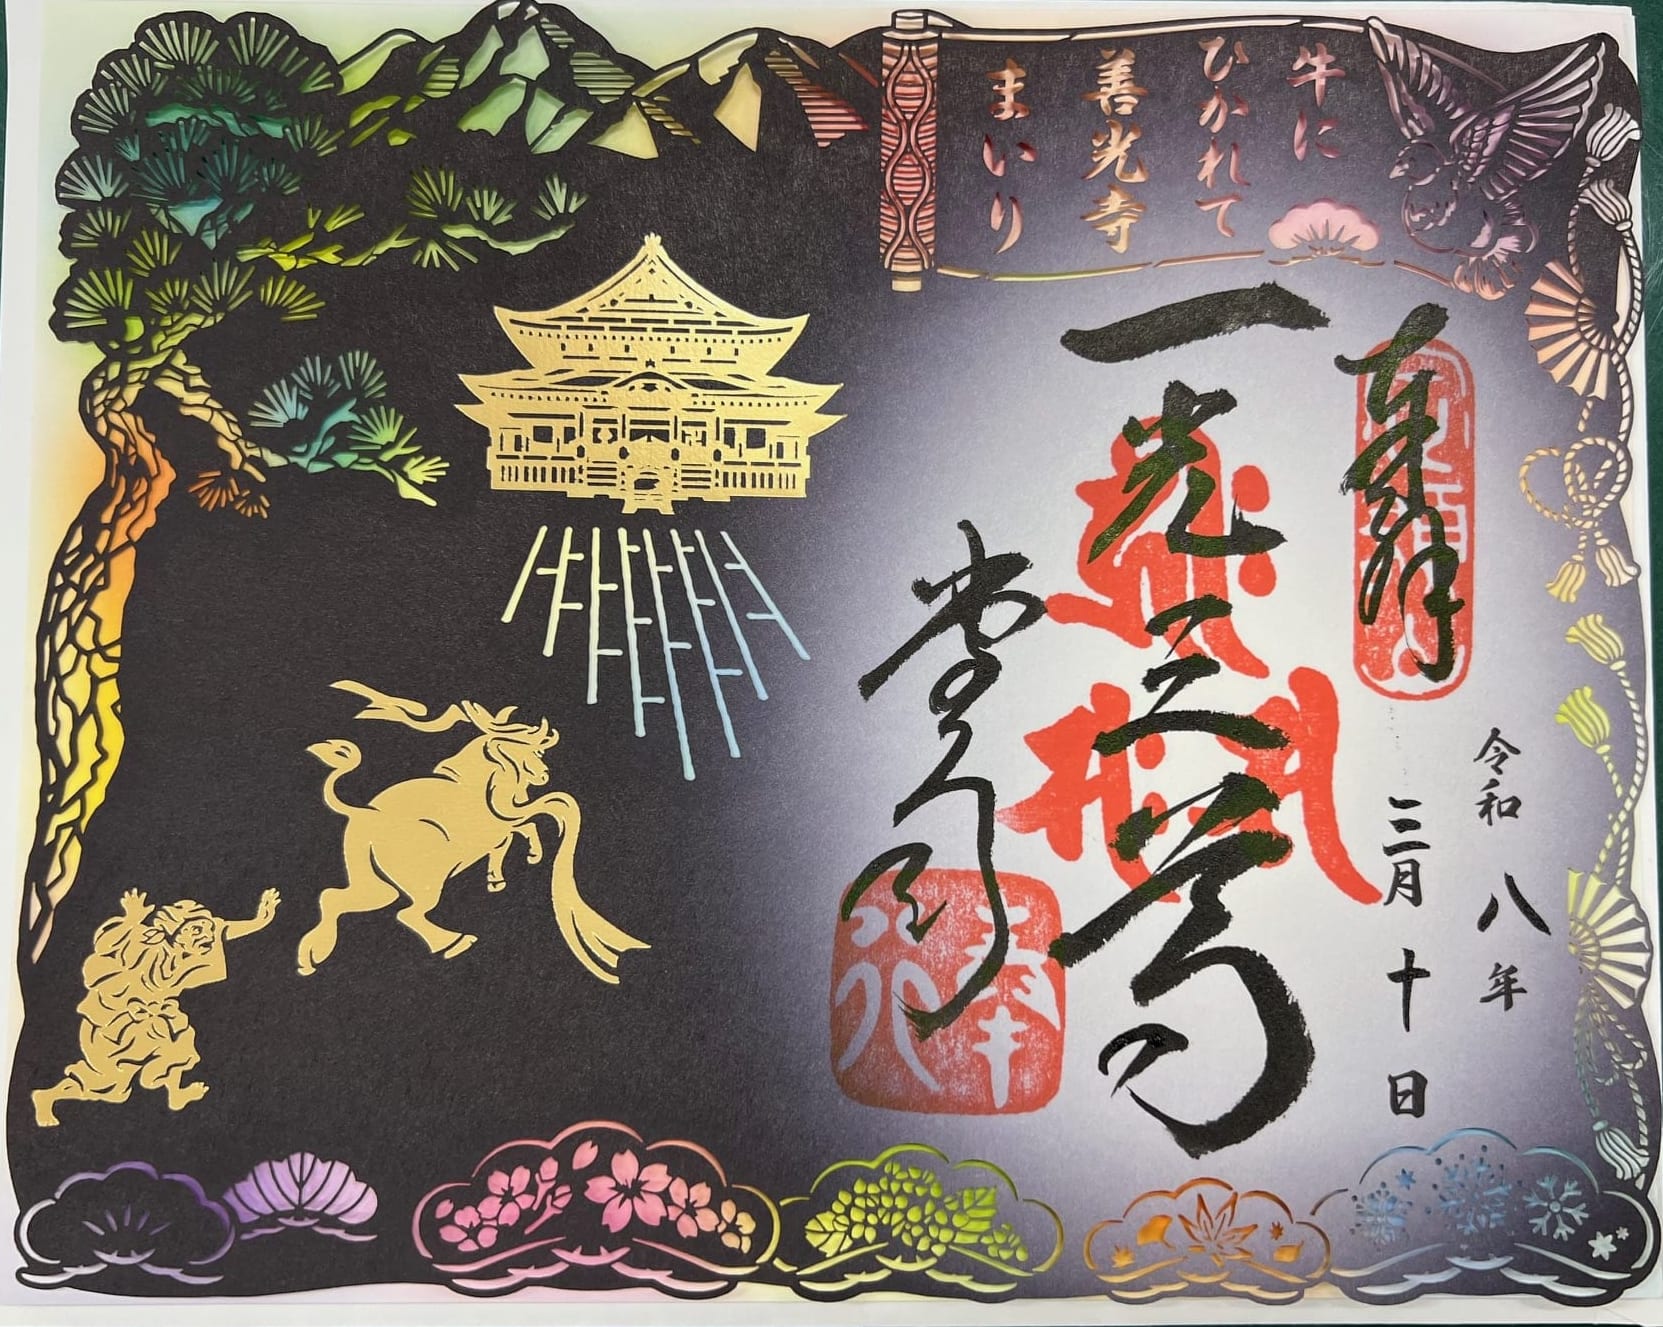 牛に
ひかれて
善光寺
まいり
令和八年
三月十日
奉拝
一光三尊